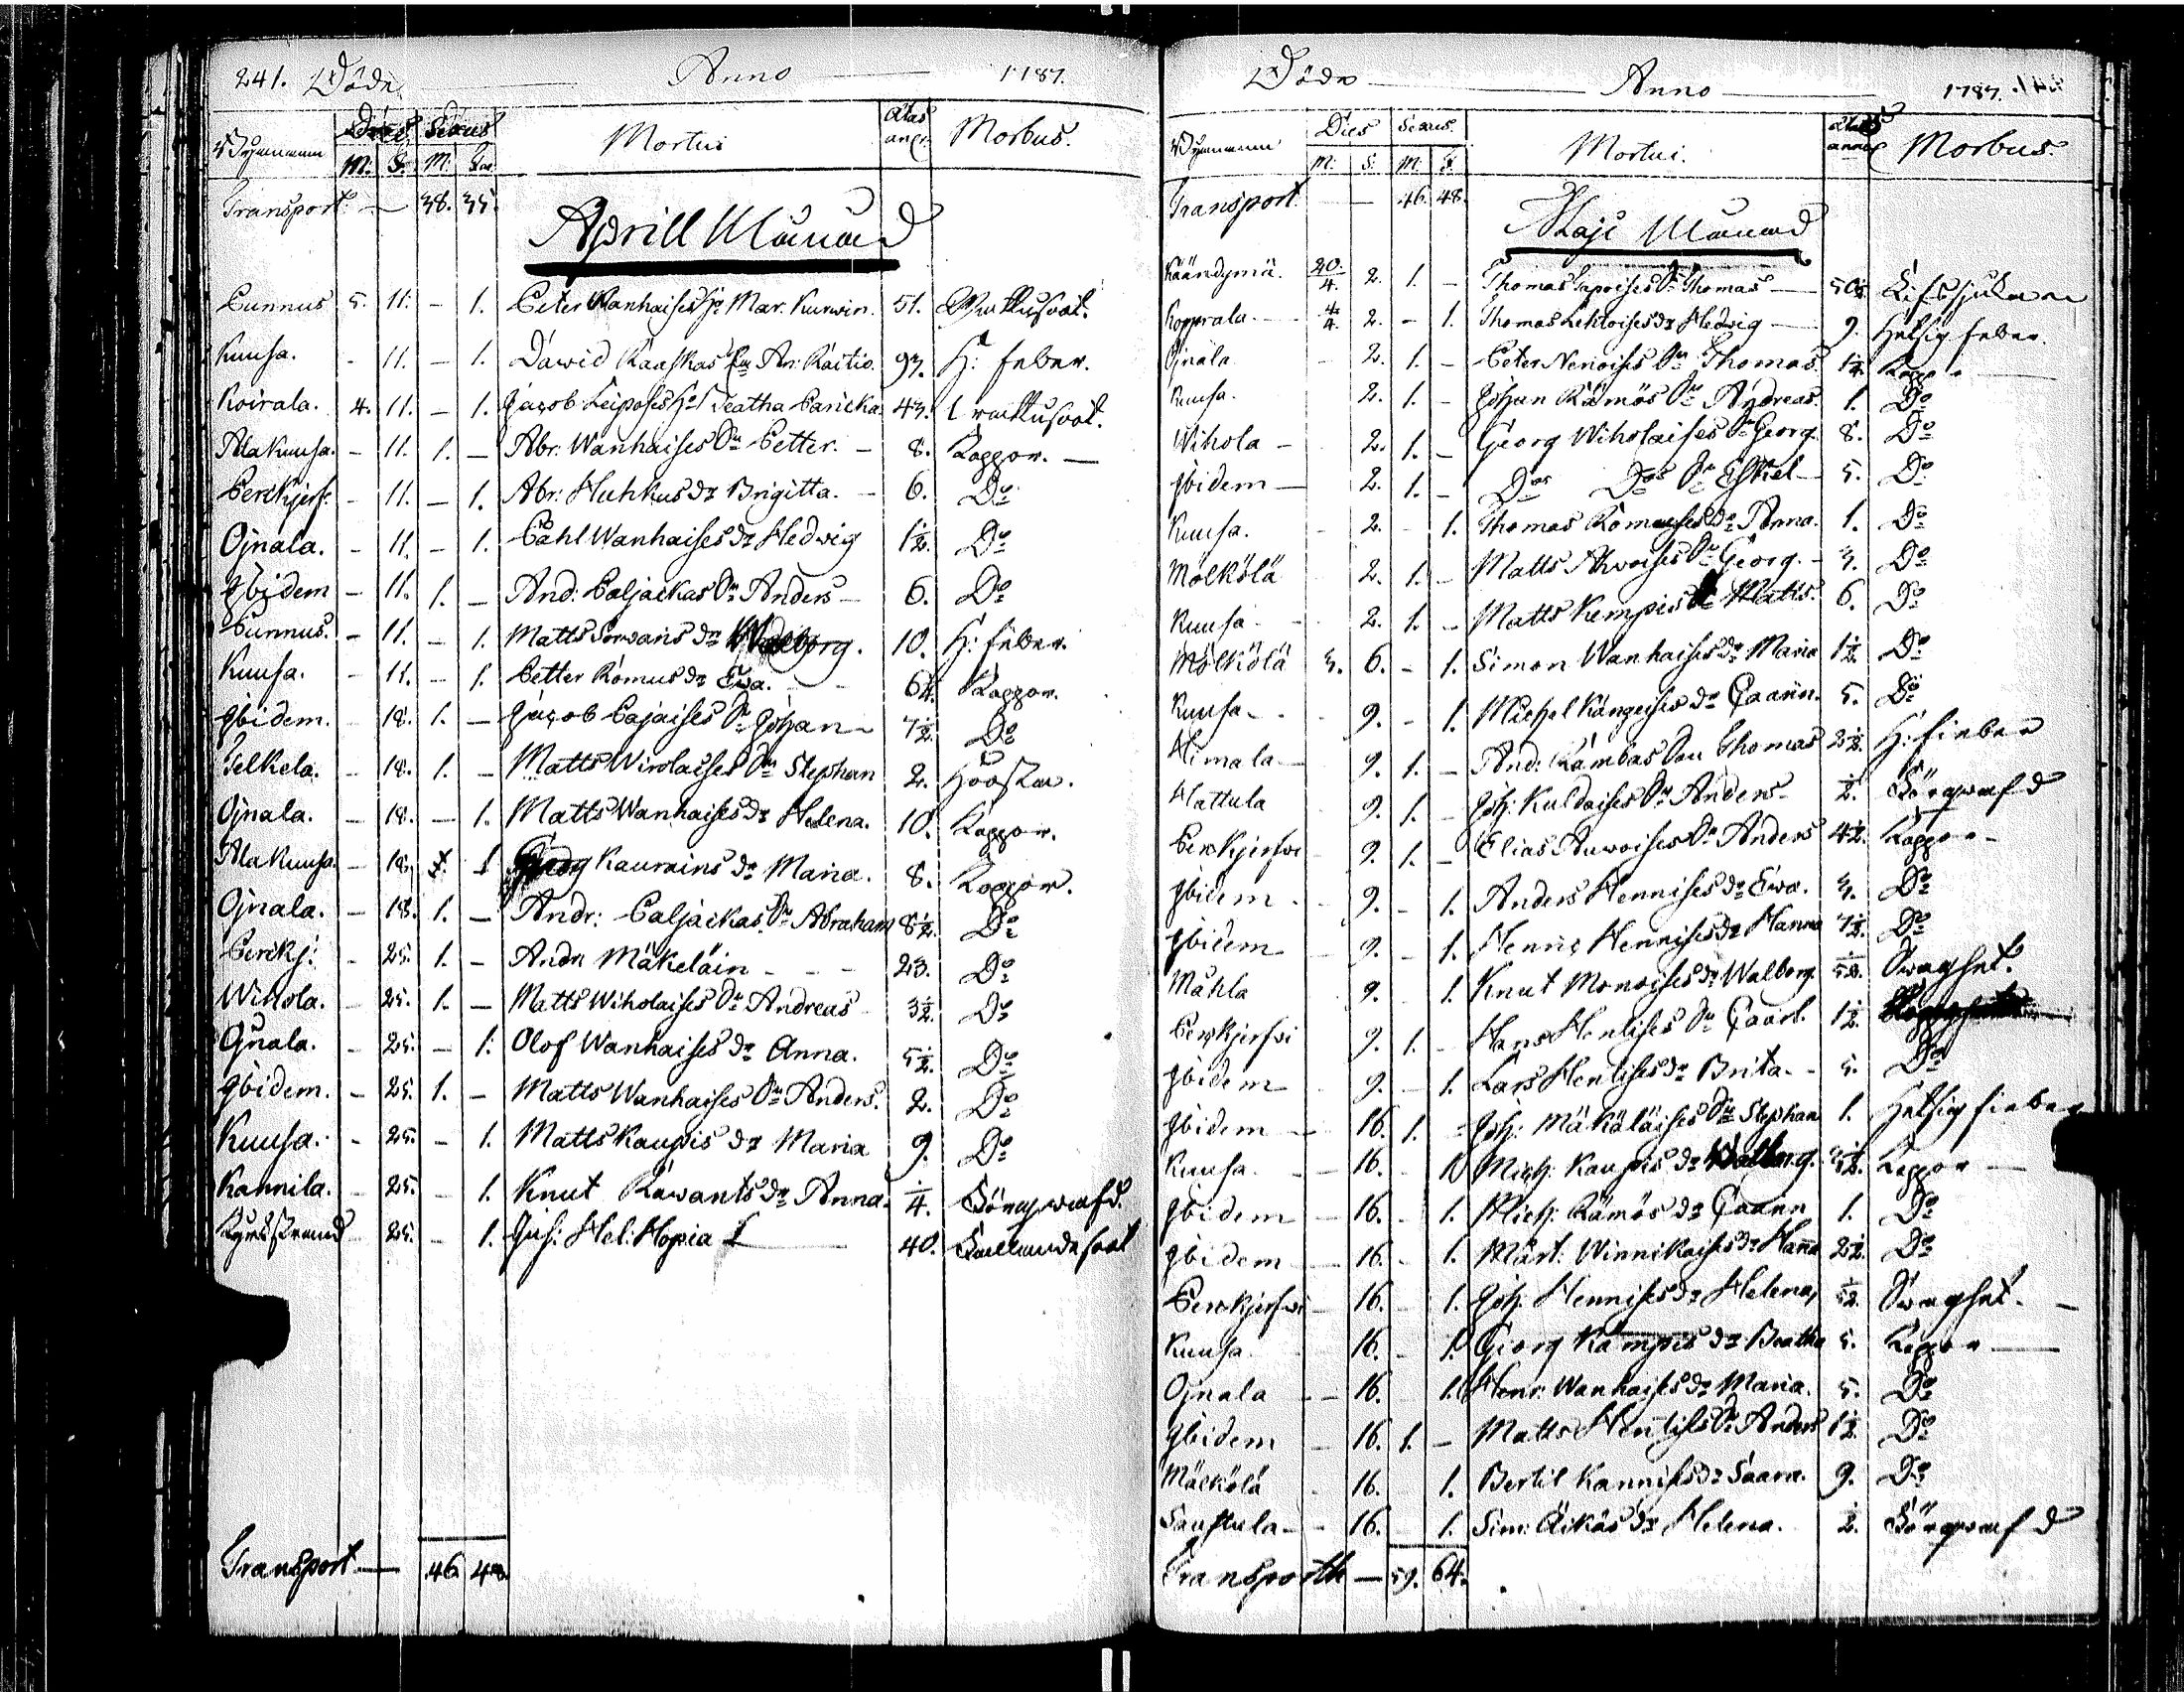 241. Döde. Anno 1787.
Dies Sexus Mortui Ætas Morbus.
M: S: M: annor.
Transport. — 38. 35.
Aprill Månad
Punnus 5. 11. - 1. Peter Wanhaises Mar. Kurwin. 51.
Kuusa. - 11. - 1. Dawid Raaskas An: Raitio. 93. H: feber.
Koirala. 4. 11. - 1. Jacob Leiposes Beatha Paricka 43.
Alakuusa. - 11. 1. - Abr: Wanhaises Sn Petter. - 8. Koppor. —
Perckjerf. - 11. - 1. Abr: Huhkus dr Brigitta. - 6. Do
Ojnala. - 11. - 1. Påhl Wanhaises dr Hedwig 1½. Do
Ibidem - 11. 1. - And: Paljackas Sn Anders - 6. Do
Punnus. - 11. - 1. Matts Sorwaris dr Walborg. 10. H: feber.
Kuusa. - 11. - 1. Petter Romus dr Ewa. - - 6½. Koppor.
Ibidem. - 18. 1. - Jacob Pajaises Sn Johan - 7½. Do
Selkela. - 18. 1. - Matts Wirolaises Sn Stephan 2. Hosta.
Ojnala. - 18. - 1. Matts Wanhaises dr Helena. 10. Koppor.
Alakuusa. - 18. - 1 Georg Kaurains dr Maria. 8. Koppor.
Ojnala. - 18. 1. - Andr: Paljackas Sn Abraham 8½. Do
Perckj: - 25. 1. - Andr Mäkeläin - - - 23. Do
Wihola. - 25. 1. - Matts Wiholaises Sn Andreas - 3½. Do
Ojnala. - 25. - 1. Olof Wanhaises dr Anna. 5½. Do
Ibidem. - 25. 1. - Matts Wanhaises Sn Anders. 2. Do
Kuusa. - 25. - 1. Matts Kaupis dr Maria 9. Do
Kannila. - 25. - 1. Knut Rawants dr Anna. ¼. Bönqwafd.
25. - 1. Inh: Hel: Hopia — 40.
Transport — 46. 48.
Döde Anno 1787.
Dies Sexus. Mortui. Ætas Morbus.
M: S: M: F: annor
Transport. — 46. 48.
Maji Månad
Käändymä. 20./4. 2. 1. - Thomas Sapoises Sn Thomas — 50½. Lifsjukan
Kopprala. 4./4. 2. - 1. Thomas Lehtoises dr Hedwig — 9. Hetsig feber.
Ojnala - 2. 1. - Peter Nenoises Sn Thomas. 1½. Koppor
Kuusa. 2. 1. - Johan Rämös Sn Andreas. 1. Do
Wihola - 2. 1. - Georg Wiholaises Sn Georg. 8. Do
Ibidem - 2. 1. - Dos Dos Sn Eskel - 5. Do
Kuusa. - 2. - 1. Thomas Romuses dr Anna. 1. Do
Mölkölä 2. 1. - Matts Ahwoises Sn Georg. - 3. Do
Kuusa - 2. 1. - Matts Kempis Sn Matts. 6. Do
Mölkölä 3. 6. - 1. Simon Wanhaises dr Maria 1½. Do
Kuusa - 9. - 1. Michel Kångeises dr Caarin. 5. Do
Himala - 9. 1. - And: Rämbas Son Thomas 2½. H: fieber
Hattula 9. 1. - Joh: Kuldaises Sn Anders - ½. Bönqwafd
Perckjerfwi 9. 1. - Elias Auwoises Sn Anders 4½. Koppor -
Ibidem. - 9. - 1. Anders Hennises dr Ewa. 3. Do
Ibidem - 9. - 1. Henric Hennises dr Hanna 7½. Do
Mahla 9. - 1. Knut Monoises dr Walborg. Swaghet.
Perckjerfwi 9. 1. - Hans Hentises Sn Caarl. 1½.
Ibidem - 9. - 1. Lars Hentises dr Brita. - 5. Do
Ibidem - 16. 1. - Joh: Mäkäläises Sn Stephan 1. Hetsig fieber
Kuusa. - 16. - 1. Mich: Kaupis dr Walborg. 3½. Koppor —
Ibidem - 16. - 1. Mich: Rämös dr Caarin 1. Do
Ibidem - 16. - 1. Mårt: Winnikaises dr Hanna 2½. Do
Perckjerfwi - 16. - 1. Joh. Hennises dr Helena, Swaghet. -
Kuusa. 16. - 1. Georg Kämpis dr Beatha 5. Koppor —
Ojnala - 16. 1. Henr: Wanhaises dr Maria. 5. Do
Ibidem - 16. 1. - Matts Hentises Sn Anders 1½. Do
Mälkölä - 16. 1. Bertil Kannises dr Saara. 9. Do
16. 1. Sim: Äikäs dr Helena. ½. Bönqwafd
Transporth — 59. 64.